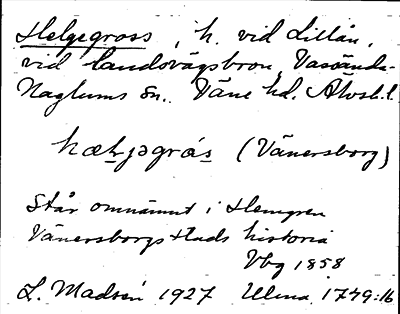 Helgegross, h. vid Lillån,
vid landsvägsbron, Vassända-
Naglums sn. Väne hd. Älvsb.l.
(Vänersborg)
Står omnämnt i Hemgren
Vänersborgs stads historia
Vbg 1858
L. Madsén 1927 Ulma 1779:16